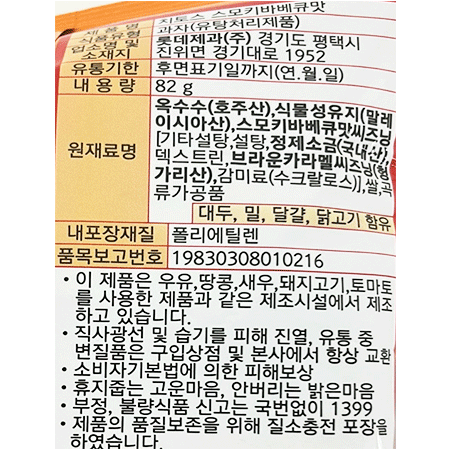 제품명 치토스 스모키바베큐맛
식품유형 과자(유탕처리제품)
업소명 및 소재지 롯데제과(주) 경기도 평택시
진위면 경기대로 1952
유통기한 후면표기일까지(연.월.일)
내 용 량 82 g
원재료명 옥수수(호주산),식물성유지(말레
이시아산),스모키바베큐맛씨즈닝
[기타설탕,설탕,정제소금(국내산),
덱스트린,브라운카라멜씨즈닝(헝
가리산),감미료(수크랄로스)],쌀,곡
류가공품
대두, 밀, 달걀, 닭고기 함유
내포장재질 폴리에틸렌
품목보고번호 19830308010216
• 이 제품은 우유,땅콩,새우,돼지고기,토마토
를 사용한 제품과 같은 제조시설에서 제조
하고 있습니다.
• 직사광선 및 습기를 피해 진열, 유통 중
변질품은 구입상점 및 본사에서 항상 교환
• 소비자기본법에 의한 피해보상
• 휴지줍는 고운마음, 안버리는 밝은마음
• 부정, 불량식품 신고는 국번없이 1399
• 제품의 품질보존을 위해 질소충전 포장을
하였습니다.